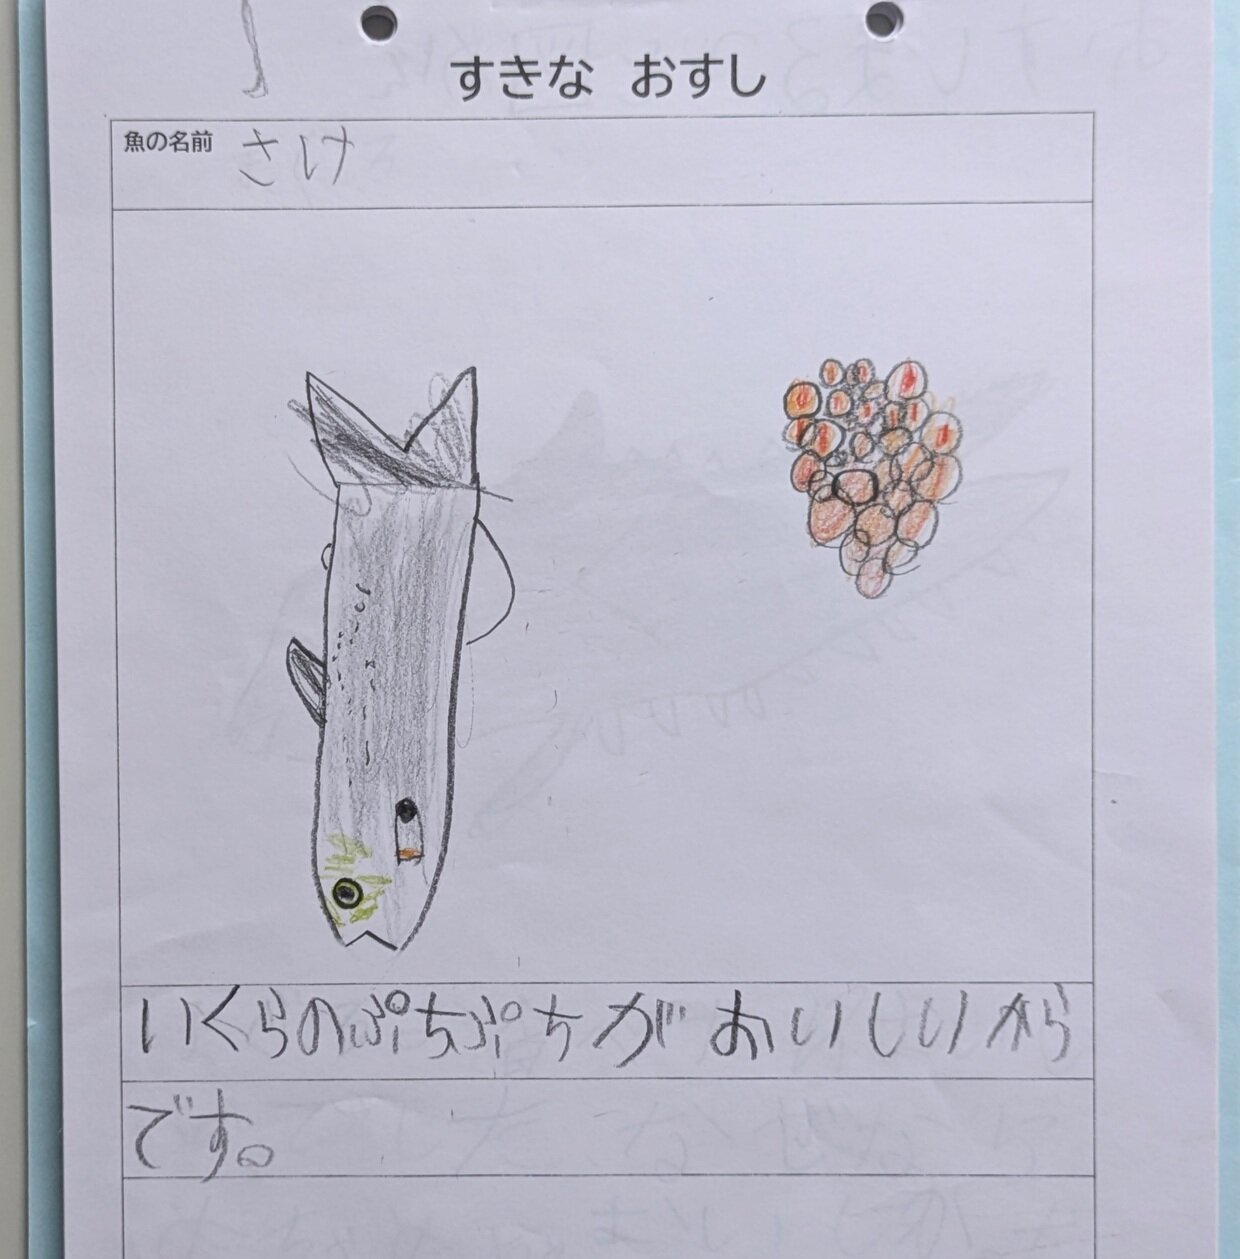 すきな おすし
魚の名前 さけ
いくらのぷちぷちがおいしいから
です。